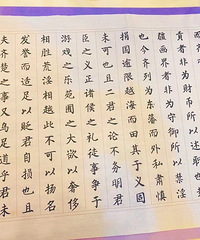 贡者非为财币所以述职也封
疆画界者非为守御所以禁淫
也今齐列为东藩而外私肃慎
捐国逾限越海而田其于义固
未可也且二君之论不务明君
臣之义正诸侯之礼徒事争于
游戏之乐苑囿之大欲以奢侈
相胜荒淫相越此不可以扬名
发誉而适足以贬君自损也且
夫齐楚之事又乌足道乎君未